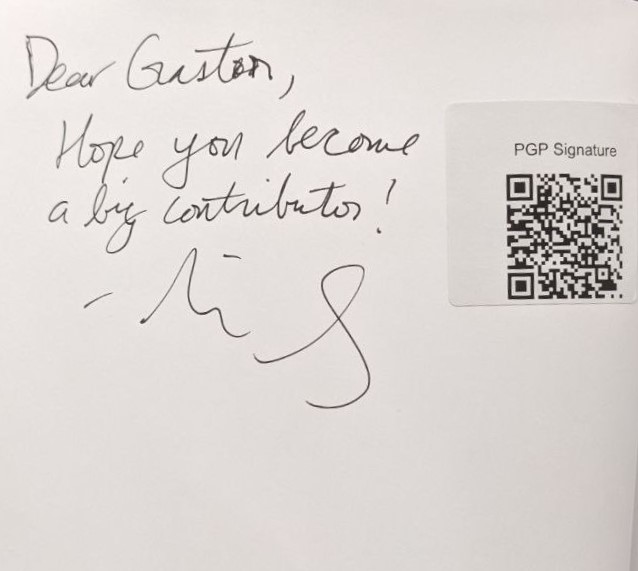 Dear Gaston,
Hope you become
a big contributor!
PGP Signature